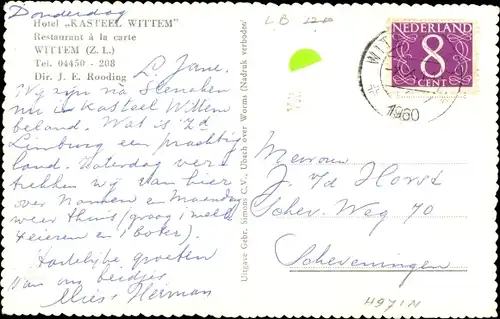 Donderdag
Hotel „KASTEEL WITTEM"
Restaurant à la carte
WITTEM (Z. L.)
Tel. 04450 - 208
Dir. J. E. Rooding
L. Jane.
Wy zyn na Slenaken
nu in Kasteel Wittem
beland. Wat is Zd
Limburg een prachtig
land. Zaterdag ver
trekken wy van hier
over Namen en Maandag
weer thuis (graag 1 melk
4 eieren en 1 boter).
Hartelyke groeten
van ons beidjes
Miess Herman
Uitgave Gebr. Simons C.V., Ubach over Worms (Nadruk verboden)
LB 120
NEDERLAND
8
CENT
WIT
1960
Mevrouw
J. v/d Horst
Schev. Weg 70
Scheveningen
H971N